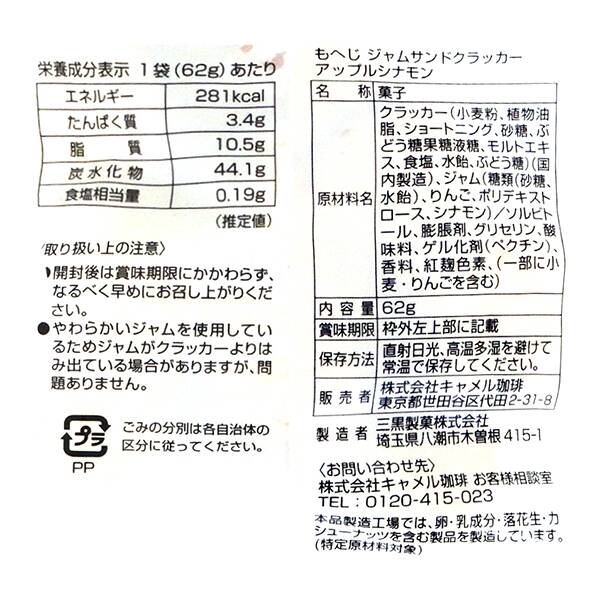 栄養成分表示 1袋(62g)あたり
エネルギー 281kcal
たんぱく質 3.4g
脂質 10.5g
炭水化物 44.1g
食塩相当量 0.19g
(推定値)
〈取り扱い上の注意〉
●開封後は賞味期限にかかわらず、
なるべく早めにお召し上がりくだ
さい。
●やわらかいジャムを使用してい
るためジャムがクラッカーよりは
み出ている場合がありますが、問
題ありません。
プラ
PP
ごみの分別は各自治体の
区分に従ってください。
もへじ ジャムサンドクラッカー
アップルシナモン
名称 菓子
原材料名
クラッカー(小麦粉、植物油
脂、ショートニング、砂糖、ぶ
どう糖果糖液糖、モルトエキ
ス、食塩、水飴、ぶどう糖)(国
内製造)、ジャム(糖類(砂糖、
水飴)、りんご、ポリデキスト
ロース、シナモン)/ソルビト
ール、膨脹剤、グリセリン、酸
味料、ゲル化剤(ペクチン)、
香料、紅麹色素、(一部に小
麦・りんごを含む)
内容量 62g
賞味期限 枠外左上部に記載
保存方法 直射日光、高温多湿を避けて
常温で保存してください。
販売者 株式会社キャメル珈琲
東京都世田谷区代田2-31-8
製造者 三黒製菓株式会社
埼玉県八潮市木曽根415-1
〈お問い合わせ先〉
株式会社キャメル珈琲 お客様相談室
TEL:0120-415-023
本品製造工場では、卵・乳成分・落花生・カ
シューナッツを含む製品を製造しています。
(特定原材料対象)